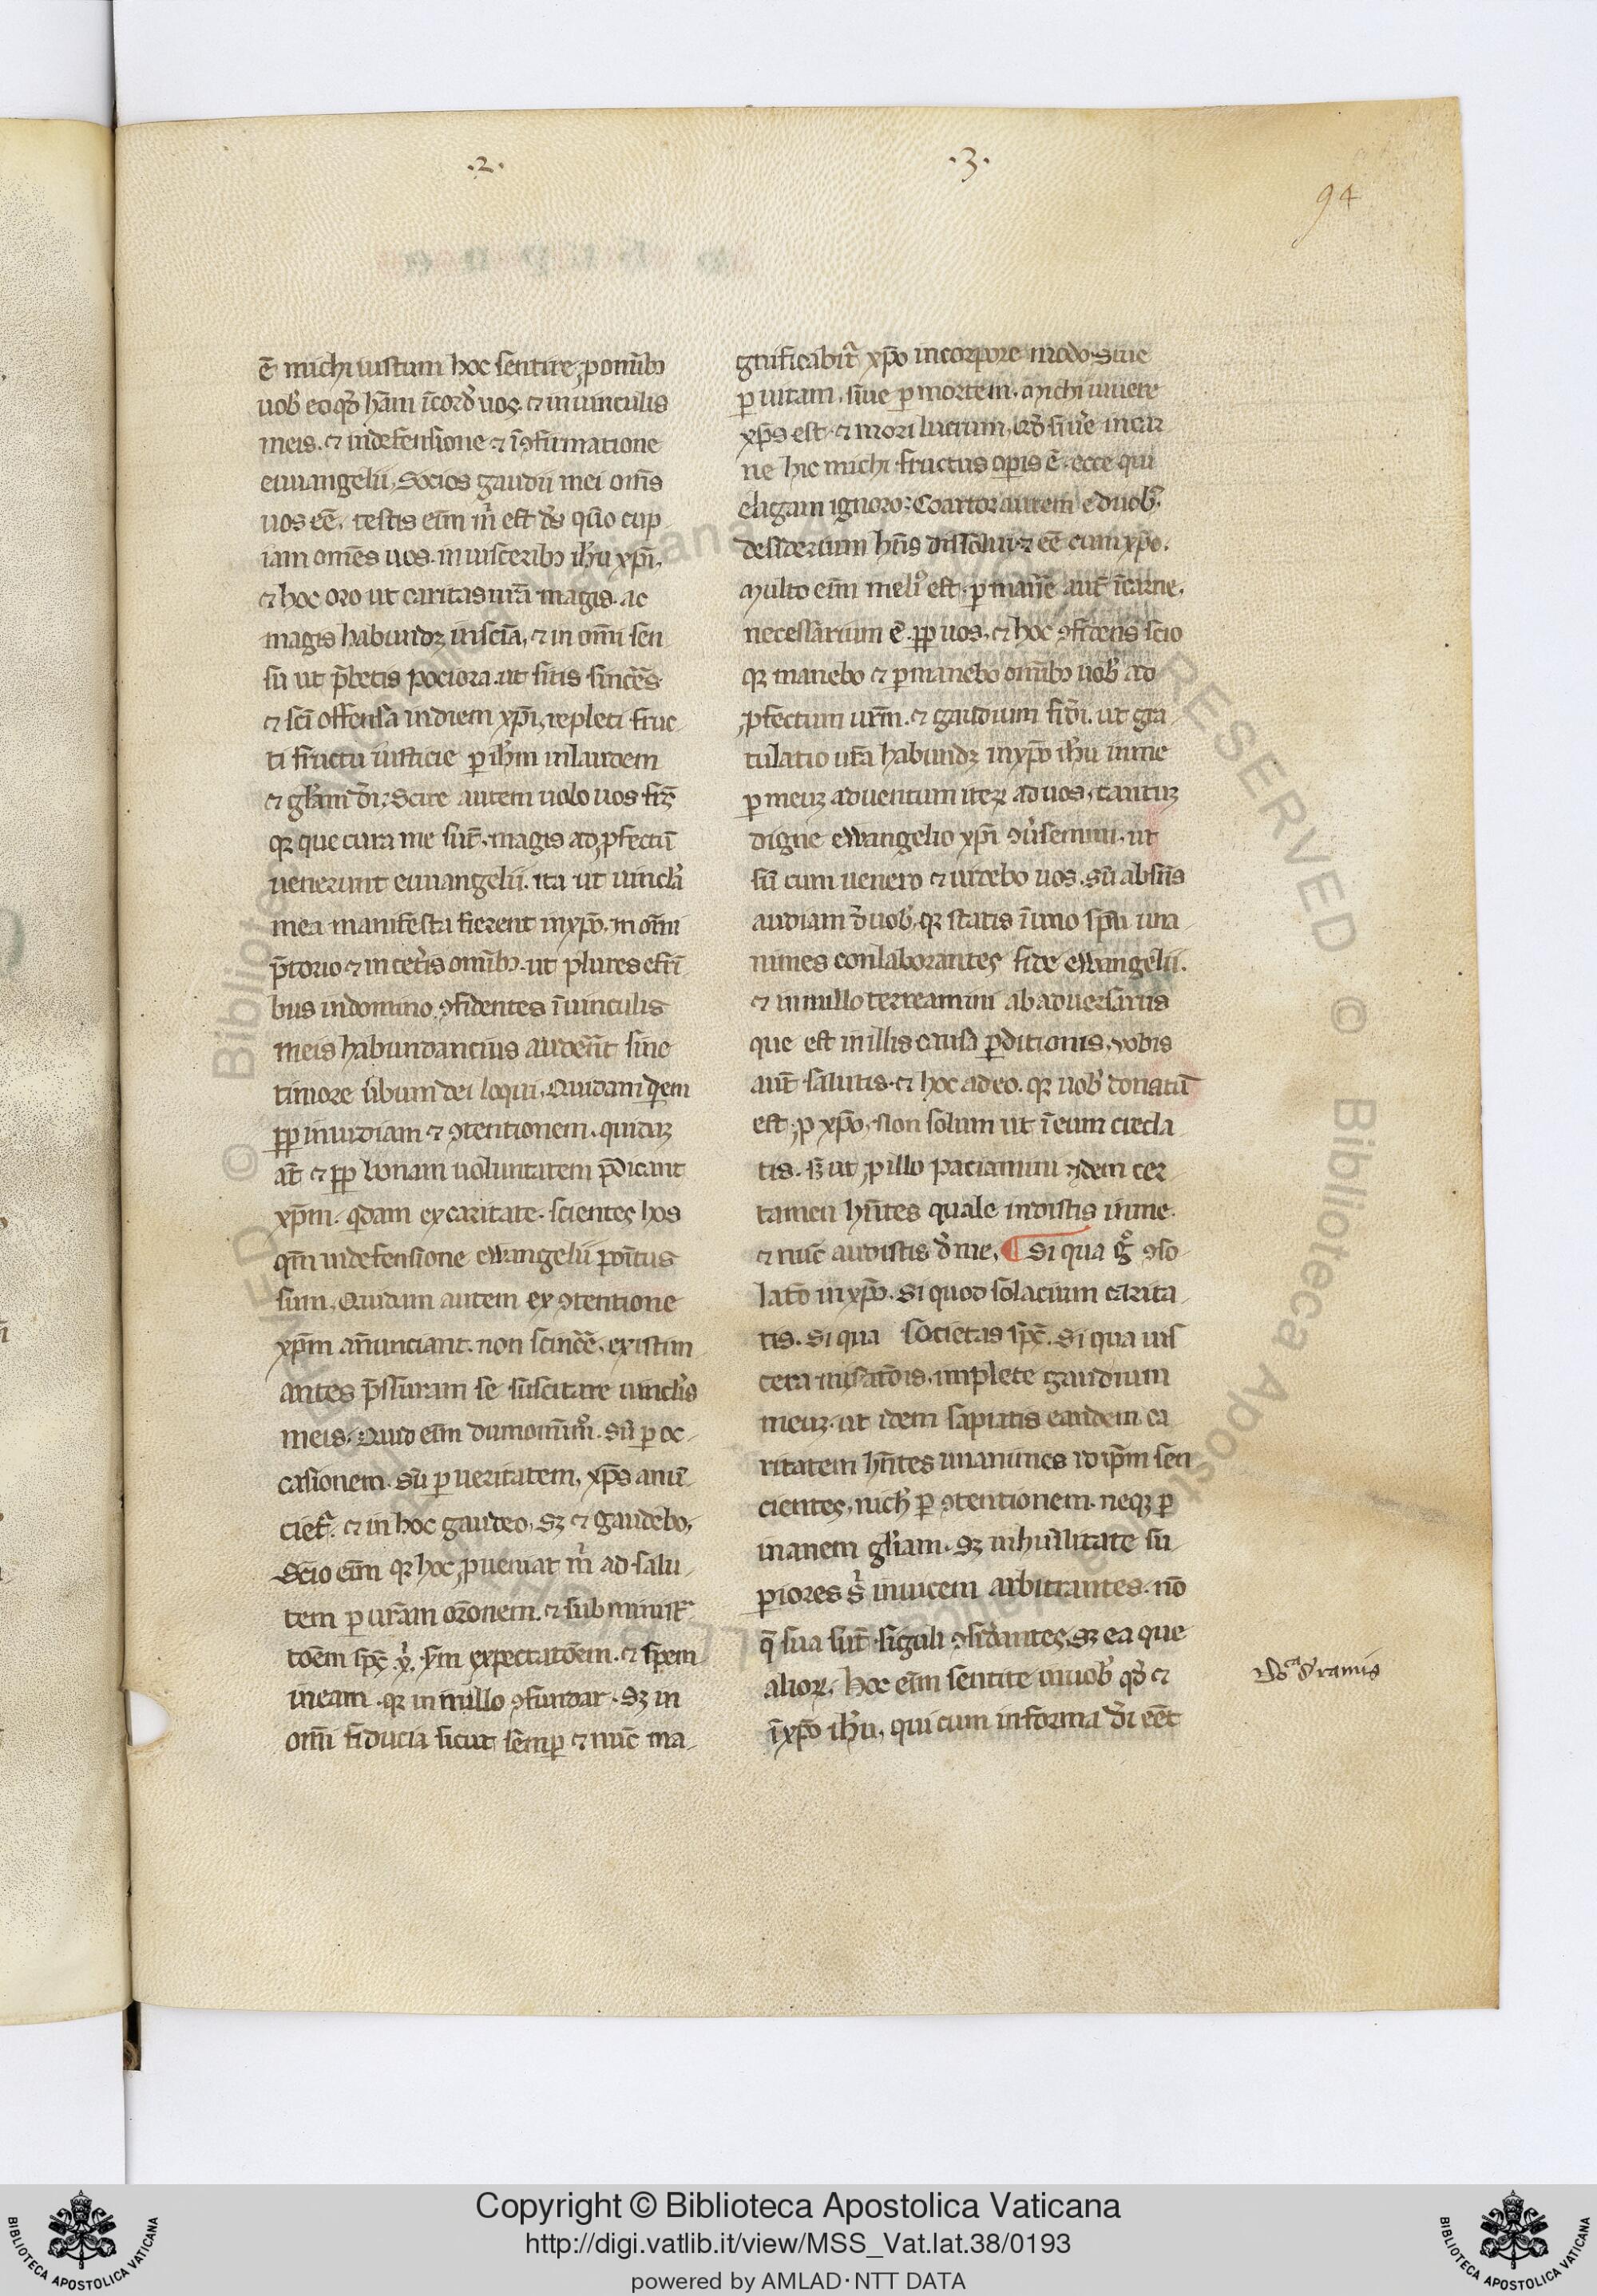 .2.
.3.
94
ē michi iustum hoc sentire, ꝓ omībꝫ
uob̾ eo qd̾ hām ī cord̾ uos. ⁊ in uinculis
meis. ⁊ in defensione ⁊ ī ꝯfirmatione
euuangelii, Socios gaudii mei om̄s
uos eē. testis eīm m̄ est d̄s quō cup
iam omēs uos. in uisceribꝫ ihū xp̄i,
⁊ hoc oro ut caritas ur̄a magis. ac
magis habundꝫ in sciā, ⁊ in omī sen
su ut ꝓbetis pociora. ut sitis sincēs
⁊ sn̄ offensa in diem xp̄i, repleti fruc
ti fructu iusticie ꝑ ihm̄ in laudem
⁊ gl̄am dī: Scire autem uolo uos fr̄s
qꝛ que circa me sūt. magis ad ꝓfectū
uenerunt euuangelii. ita ut uincl̄a
mea manifesta fierent in xp̄o. in om̄i
p̄torio ⁊ in cet̄is omībꝫ. ut plures e fr̄i
bus in domino ꝯfidentes ī uinculis
meis habundancius auder̄et sine
timore ūbum dei loqui, Quidam qͥdem
ꝓp̄ inuidiam ⁊ ꝯtentionem. quidaꝫ
aū ⁊ ꝓp̄ bonam uoluntatem p̄dicant
xp̄m. qͥdam ex caritate. scientes hos
qm̄ in defensione ewangelii poītus
sum, Quidam autem ex ꝯtentione
xp̄m añunciant. non scincē. existim
antes p̄ssuram se suscitare uincl̄is
meis, Quid eīm dum om̄i mͦ. sū ꝑ oc
casionem. sū ꝑ ueritatem, xp̄s anū
cietr̄. ⁊ in hoc gaudeo, sꝫ ⁊ gaudebo,
Scio eīm qꝛ hoc ꝓueniat m̄ ad salu
tem ꝑ ur̄am or̄onem. ⁊ sub minist̄
tōem sp̄c x̄. s̄m expectatōem. ⁊ spem
meam. qꝛ in nullo ꝯfundar. Sꝫ in
om̄i fiducia sicut semꝑ ⁊ nūc ma
gnificabit̄ xp̄o in corpore modo siue
ꝑ uitam. siue ꝑ mortem. Michi uiuere
xp̄s est. ⁊ mori lucrum, qd̾ si uiū̄e in car
ne hic michi fructus oꝑis ē. ecce qui
eligam ignoro: Coartor autem e duobꝫ.
desiderium hn̄s dissolui. ⁊ eē cum xp̄o.
Multo eīm meliꝰ est. ꝑ manē̄e aut̄ ī carne.
necessarium ē. ꝓp̄ uos. ⁊ hoc ꝯfidens scio
qꝛ manebo ⁊ ꝑmanebo omībꝫ uob̾ ad
ꝓfectum ur̄m. ⁊ gaudium fid̄i. ut gra
tulatio ur̄a habundꝫ in xp̄o ihū in me
ꝑ meuꝫ aduentum iteꝝ ad uos, tantuꝫ
digne ewangelio xp̄i ꝯūsemini. ut
sū cum uenero ⁊ uidebo uos. sū absn̄s
audiam d̄ uob̾. qꝛ statis ī uno sp̄u una
nimes conlaborantes fide ewangelii.
⁊ in nullo terreamini ab aduersariis
que est in illis causa ꝑditionis, vobis
aūt salutis. ⁊ hoc a deo. qꝛ uob̾ donatū
est ꝓ xp̄o. Non solum ut ī eum creda
tis. sꝫ ut ꝓ illo paciamini ydem cer
tamen hn̄tes quale uidistis in me.
⁊ nūc audistis d̄ me. ¶ Si qua g̊ ꝯso
latō in xp̄o. Si quod solacium carita
tis. Si qua societas sp̄c. Si qua uis
cera misatōis. implete gaudium
meuꝫ. ut idem sapiatis eandem ca
ritatem hn̄tes unanimes id ip̄m sen
cientes, nich̾ ꝑ ꝯtentionem. neqꝫ ꝑ
inanem gl̄iam. Sꝫ in hūilitate su
ꝑiores s̾ inuicem arbitrantes. nō
q̄ sua sūt siguli ꝯsid̄antes, Sꝫ ea que
alioꝝ. hoc eīm sentite in uob̾ qd̾ ⁊
ī xp̄o ihū, qui cum in forma dī eēt
Copyright © Biblioteca Apostolica Vaticana
http://digi.vatlib.it/view/MSS_Vat.lat.38/0193
powered by AMLAD·NTT DATA
BIBLIOTECA APOSTOLICA VATICANA
BIBLIOTECA APOSTOLICA VATICANA